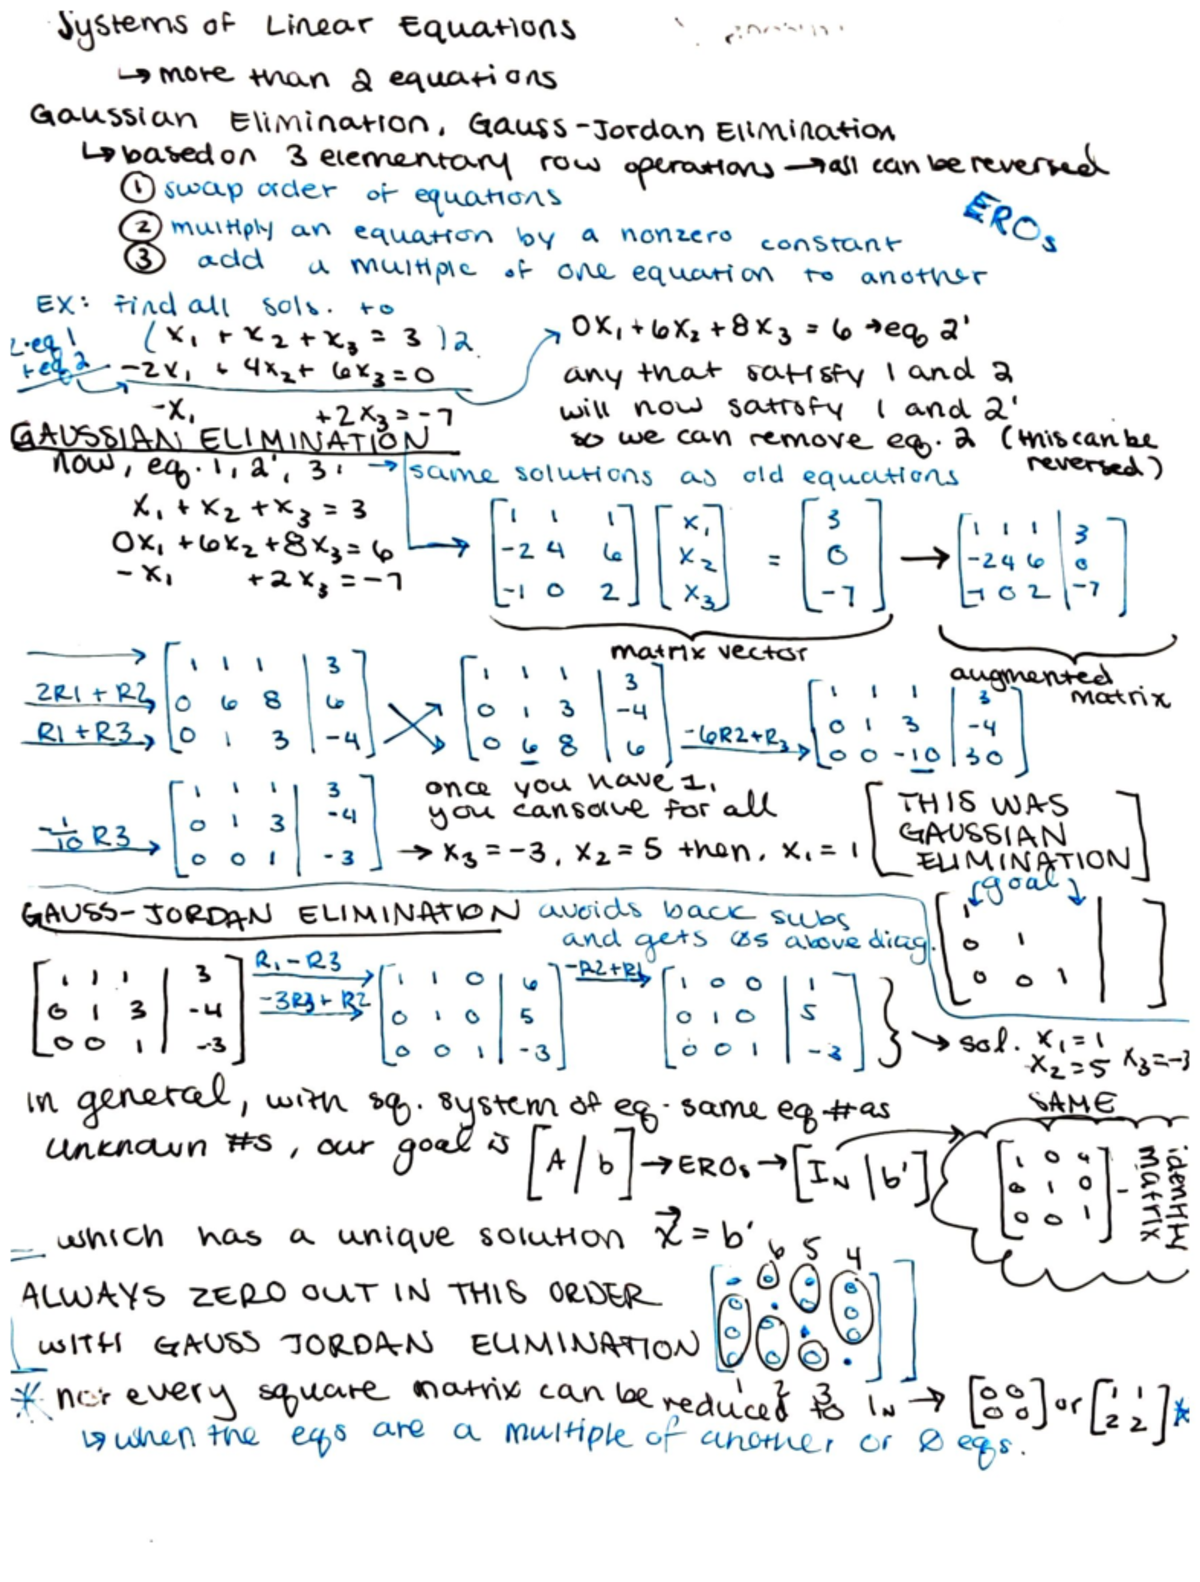 Systems of Linear Equations
↳ more than 2 equations
Gaussian Elimination, Gauss-Jordan Elimination
↳ based on 3 elementary row operations → all can be reversed
① swap order of equations
EROs
② multiply an equation by a nonzero constant
③ add a multiple of one equation to another
EX: find all sols. to
2·eq 1 (x₁ + x₂ + x₃ = 3)2
+eq 2 -2x₁ + 4x₂ + 6x₃ = 0
-x₁ + 2x₃ = -7
0x₁ + 6x₂ + 8x₃ = 6 → eq 2'
any that satisfy 1 and 2
will now satisfy 1 and 2'
so we can remove eq. 2 (this can be
reversed)
GAUSSIAN ELIMINATION
now, eq. 1, 2', 3: → same solutions as old equations
x₁ + x₂ + x₃ = 3
0x₁ + 6x₂ + 8x₃ = 6
-x₁ + 2x₃ = -7
[1 1 1; -2 4 6; -1 0 2] [x₁; x₂; x₃] = [3; 0; -7] → [1 1 1 | 3; -2 4 6 | 0; -1 0 2 | -7]
matrix vector
augmented
matrix
2R1 + R2
R1 + R3
[1 1 1 | 3; 0 6 8 | 6; 0 1 3 | -4] [1 1 1 | 3; 0 1 3 | -4; 0 6 8 | 6] -6R2+R3 → [1 1 1 | 3; 0 1 3 | -4; 0 0 -10 | 30]
-1/10 R3 → [1 1 1 | 3; 0 1 3 | -4; 0 0 1 | -3]
once you have 1,
you can solve for all
→ x₃ = -3, x₂ = 5 then, x₁ = 1
[THIS WAS
GAUSSIAN
ELIMINATION]
GAUSS-JORDAN ELIMINATION avoids back subs
and gets 0s above diag.
goal
[1 | ; 0 1 | ; 0 0 1 | ]
[1 1 1 | 3; 0 1 3 | -4; 0 0 1 | -3] R1 - R3 → -3R3 + R2 → [1 1 0 | 6; 0 1 0 | 5; 0 0 1 | -3] -R2+R1 → [1 0 0 | 1; 0 1 0 | 5; 0 0 1 | -3]
→ sol. x₁ = 1
x₂ = 5 x₃ = -3
in general, with sq. system of eq. same eq # as
unknown #s, our goal is [A | b] → EROs → [I_N | b']
SAME
[1 0 0; 0 1 0; 0 0 1] - identity
matrix
which has a unique solution x⃗ = b'
ALWAYS ZERO OUT IN THIS ORDER
WITH GAUSS JORDAN ELIMINATION
6 5 4
1 2 3
* not every square matrix can be reduced to I_N → [0 0; 0 0] or [1 1; 2 2] *
↳ when the eqs are a multiple of another or 0 eqs.